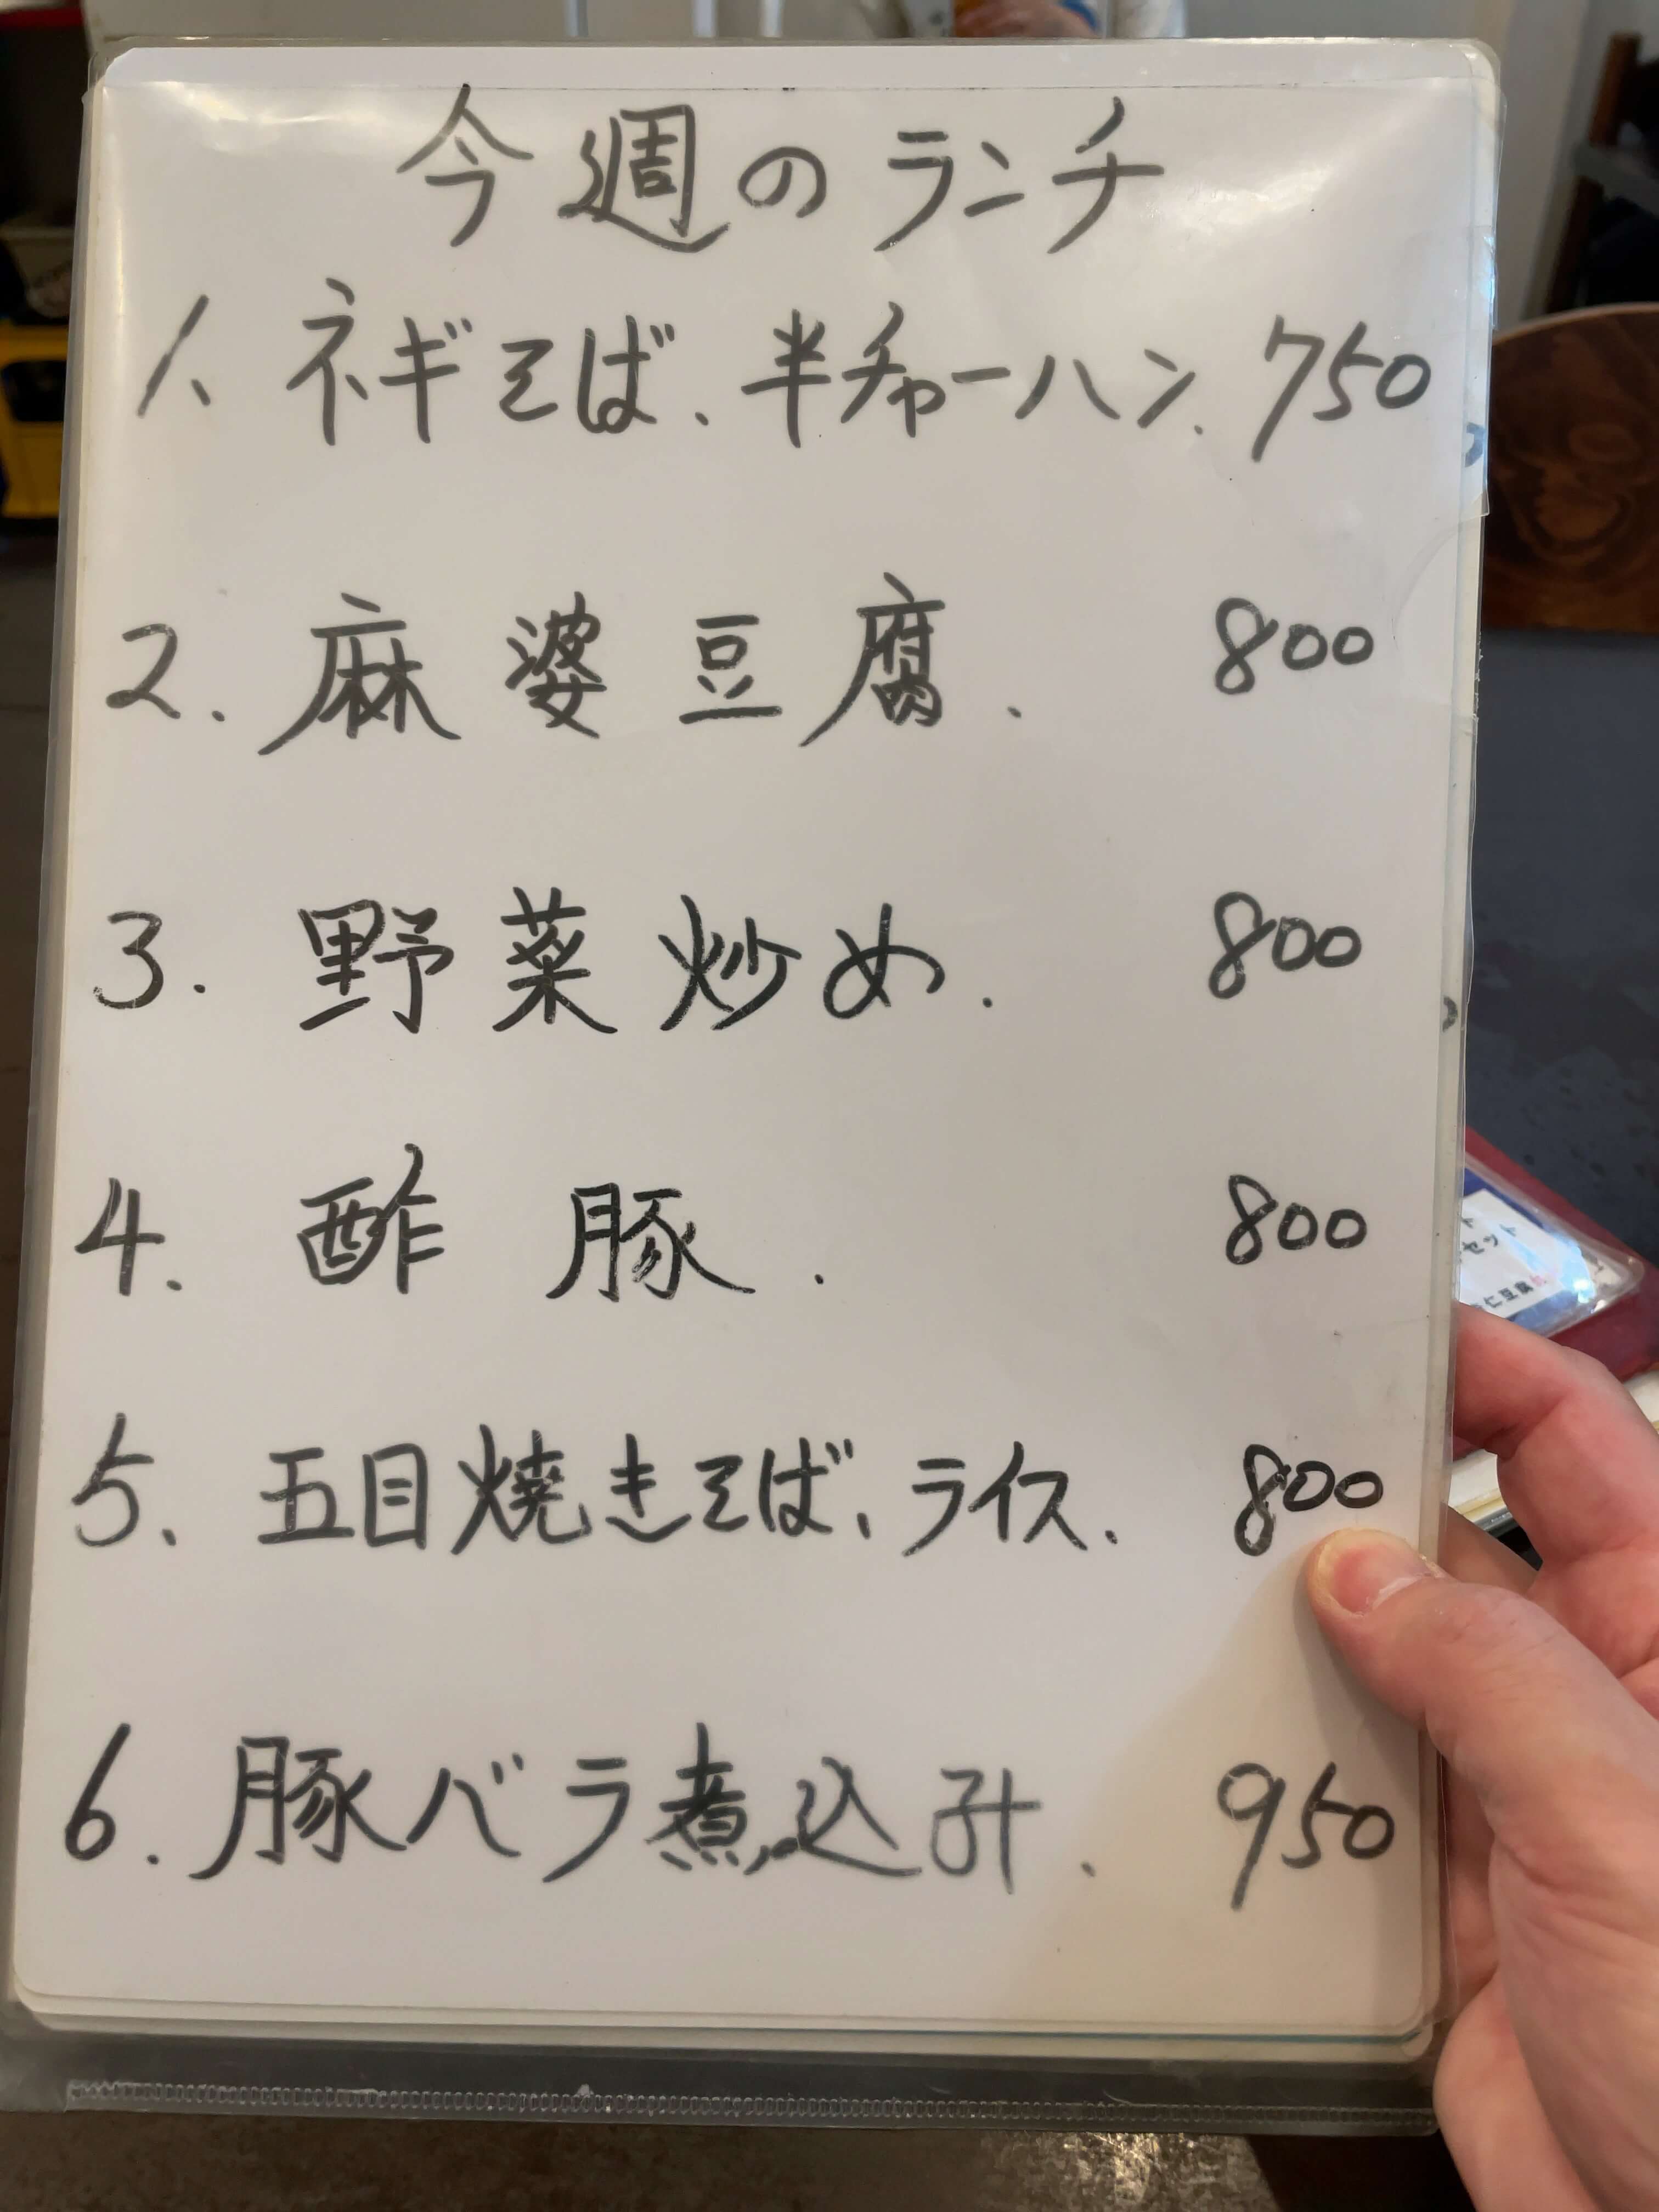 今週のランチ
1. ネギそば、半チャーハン. 750
2. 麻婆豆腐. 800
3. 野菜炒め. 800
4. 酢豚. 800
5. 五目焼きそば、ライス. 800
6. 豚バラ煮込み. 950
セット
仁豆腐